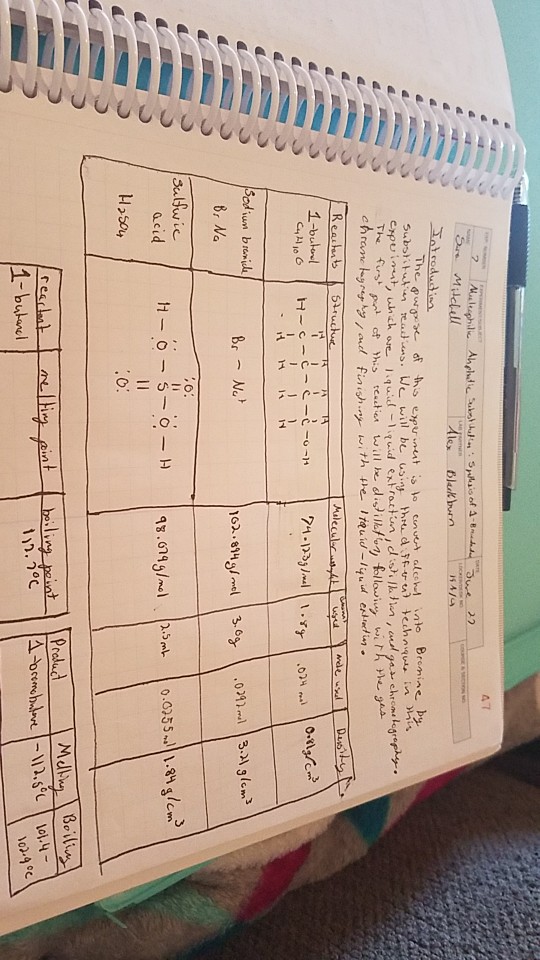 47
EXP. NUMBER
EXPERIMENT/SUBJECT
DATE
7
Nucleophilic Aliphatic Substitution: Synthesis of 1-
June 27
NAME
LAB PARTNER
LOCKER/DESK NO.
COURSE & SECTION NO.
Mitchell
Alex Blackburn
Introduction
The purpose of this experiment is to convert alcohol into Bromine by
substitution reactions. We will be using three different techniques in this
experiment, which are liquid-liquid extraction, distillation, and gas chromatography.
The first part of this reaction will be distillation, following with the gas
chromatography, and finishing with the liquid-liquid
Reactants Structure Molecular weight amount used mole used Density
1-butanol
C4H10O
H H H H
H-C-C-C-C-O-H
H H H H
74.123g/mol 1.8g .024 mol 0.81g/cm3
Sodium bromide
Br Na
Br - Na+
102.894g/mol 3.0g .0292 mol 3.21g/cm3
Sulfuric
acid
H2SO4
:O:
H-O-S-O-H
:O:
98.079g/mol 2.5ml 1.84g/cm3
reactant melting point boiling point
1-butanol 117.7°C
Product Melting Boiling
1-bromobutane -112.5°C 101.4-
102.9°C